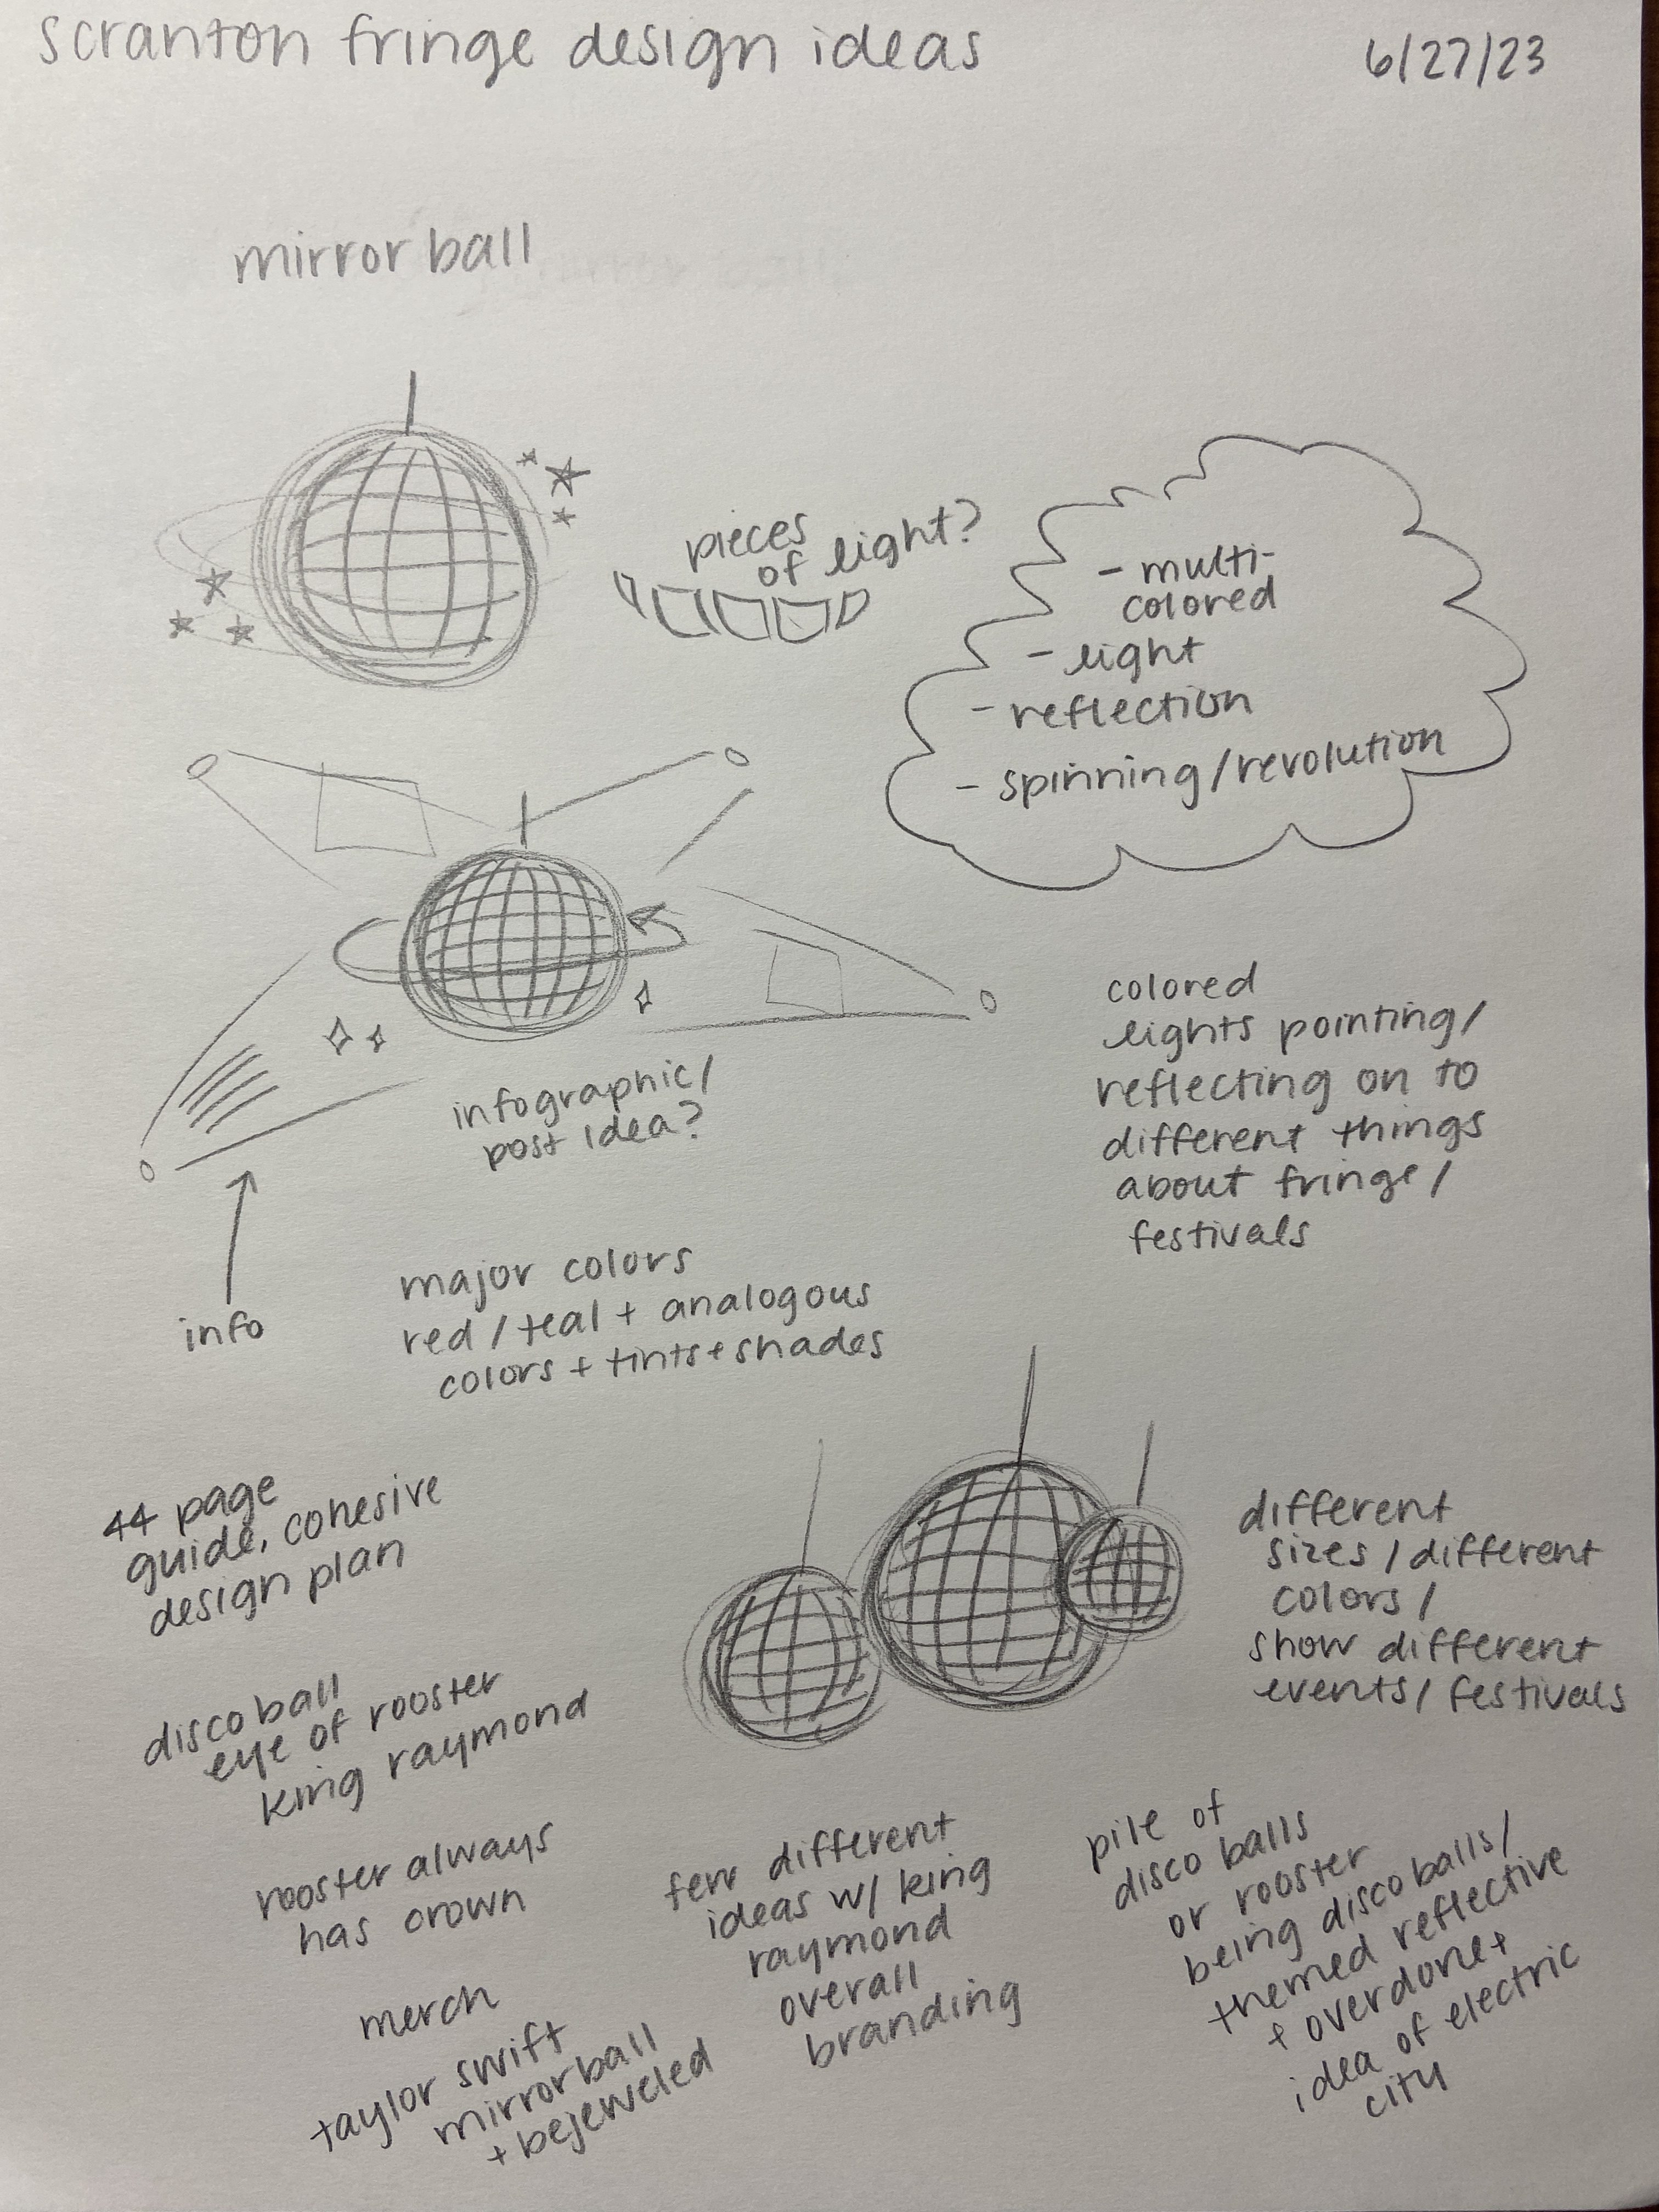 scranton fringe design ideas
6/27/23
mirror ball
pieces
of light?
- multi-
colored
- light
- reflection
- spinning/revolution
colored
lights pointing/
reflecting on to
different things
about fringe/
festivals
infographic/
post idea?
info
major colors
red/teal + analogous
colors + tints + shades
44 page
guide, cohesive
design plan
different
sizes/different
colors/
show different
events/festivals
disco ball
eye of rooster
king raymond
rooster always
has crown
merch
taylor swift
mirrorball
+ bejeweled
few different
ideas w/ king
raymond
overall
branding
pile of
disco balls
or rooster
being disco balls/
themed reflective
+ overdone +
idea of electric
city